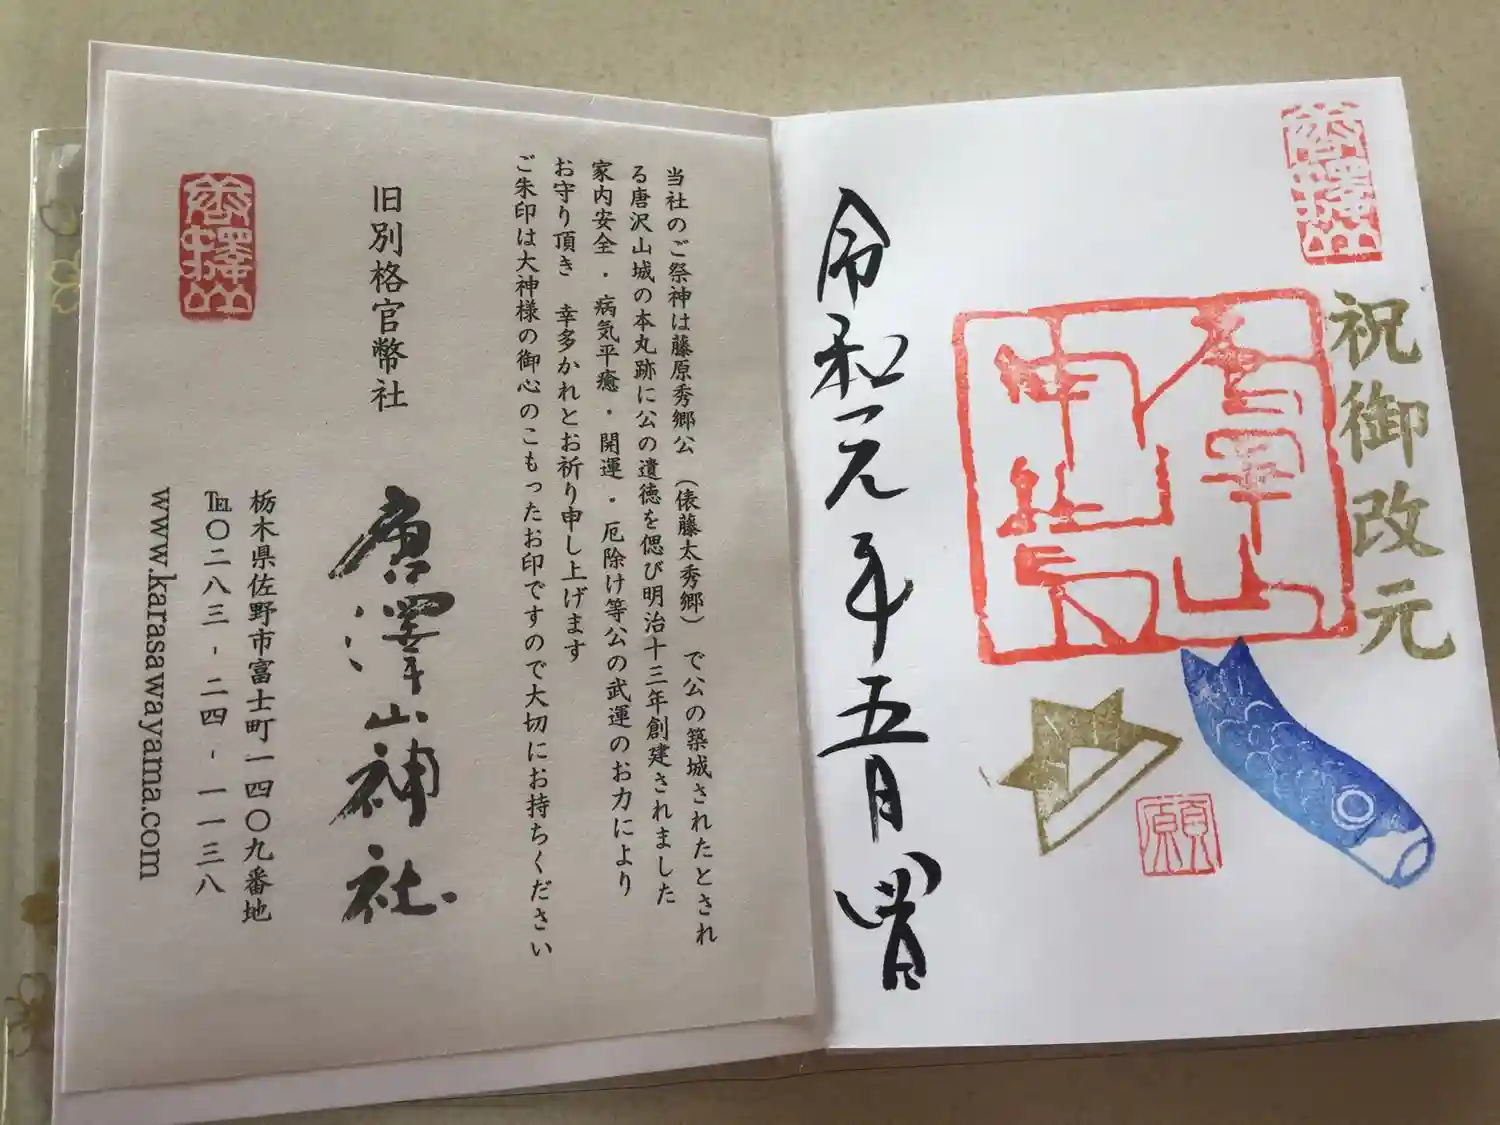 唐澤山
祝御改元
唐澤山神社
願
令和元年五月四日
当社のご祭神は藤原秀郷公(俵藤太秀郷)で公の築城されたとされ
る唐沢山城の本丸跡に公の遺徳を偲び明治十三年創建されました
家内安全・病気平癒・開運・厄除け等公の武運のお力により
お守り頂き 幸多かれとお祈り申し上げます
ご朱印は大神様の御心のこもったお印ですので大切にお持ちください
旧別格官幣社 唐澤山神社
栃木県佐野市富士町一四〇九番地
℡〇二八三-二四-一一三八
www.karasawayama.com
唐澤山